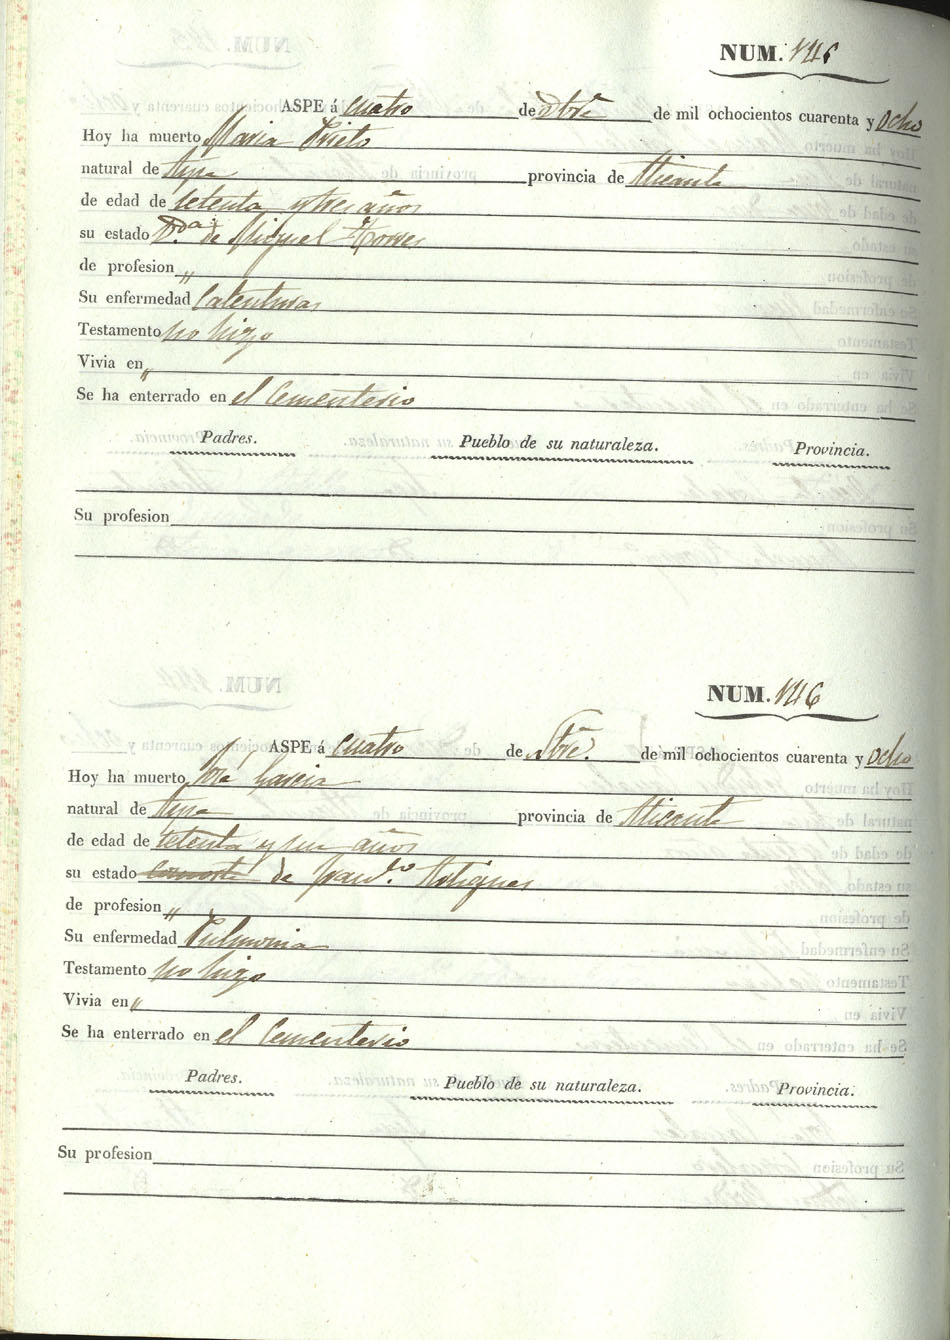 NUM. 145
ASPE á cuatro de Stbre de mil ochocientos cuarenta y ocho
Hoy ha muerto Maria Prieto
natural de Aspe provincia de Alicante
de edad de setenta y tres años
su estado Vda de Miguel Torres
de profesion "
Su enfermedad Calenturas
Testamento no hizo
Vivia en "
Se ha enterrado en el Cementerio
Padres. Pueblo de su naturaleza. Provincia.
Su profesion
NUM. 146
ASPE á cuatro de Stbre. de mil ochocientos cuarenta y ocho
Hoy ha muerto García
natural de Aspe provincia de Alicante
de edad de setenta y años
su estado consorte de Franco
de profesion "
Su enfermedad Pulmonia
Testamento no hizo
Vivia en "
Se ha enterrado en el Cementerio
Padres. Pueblo de su naturaleza. Provincia.
Su profesion